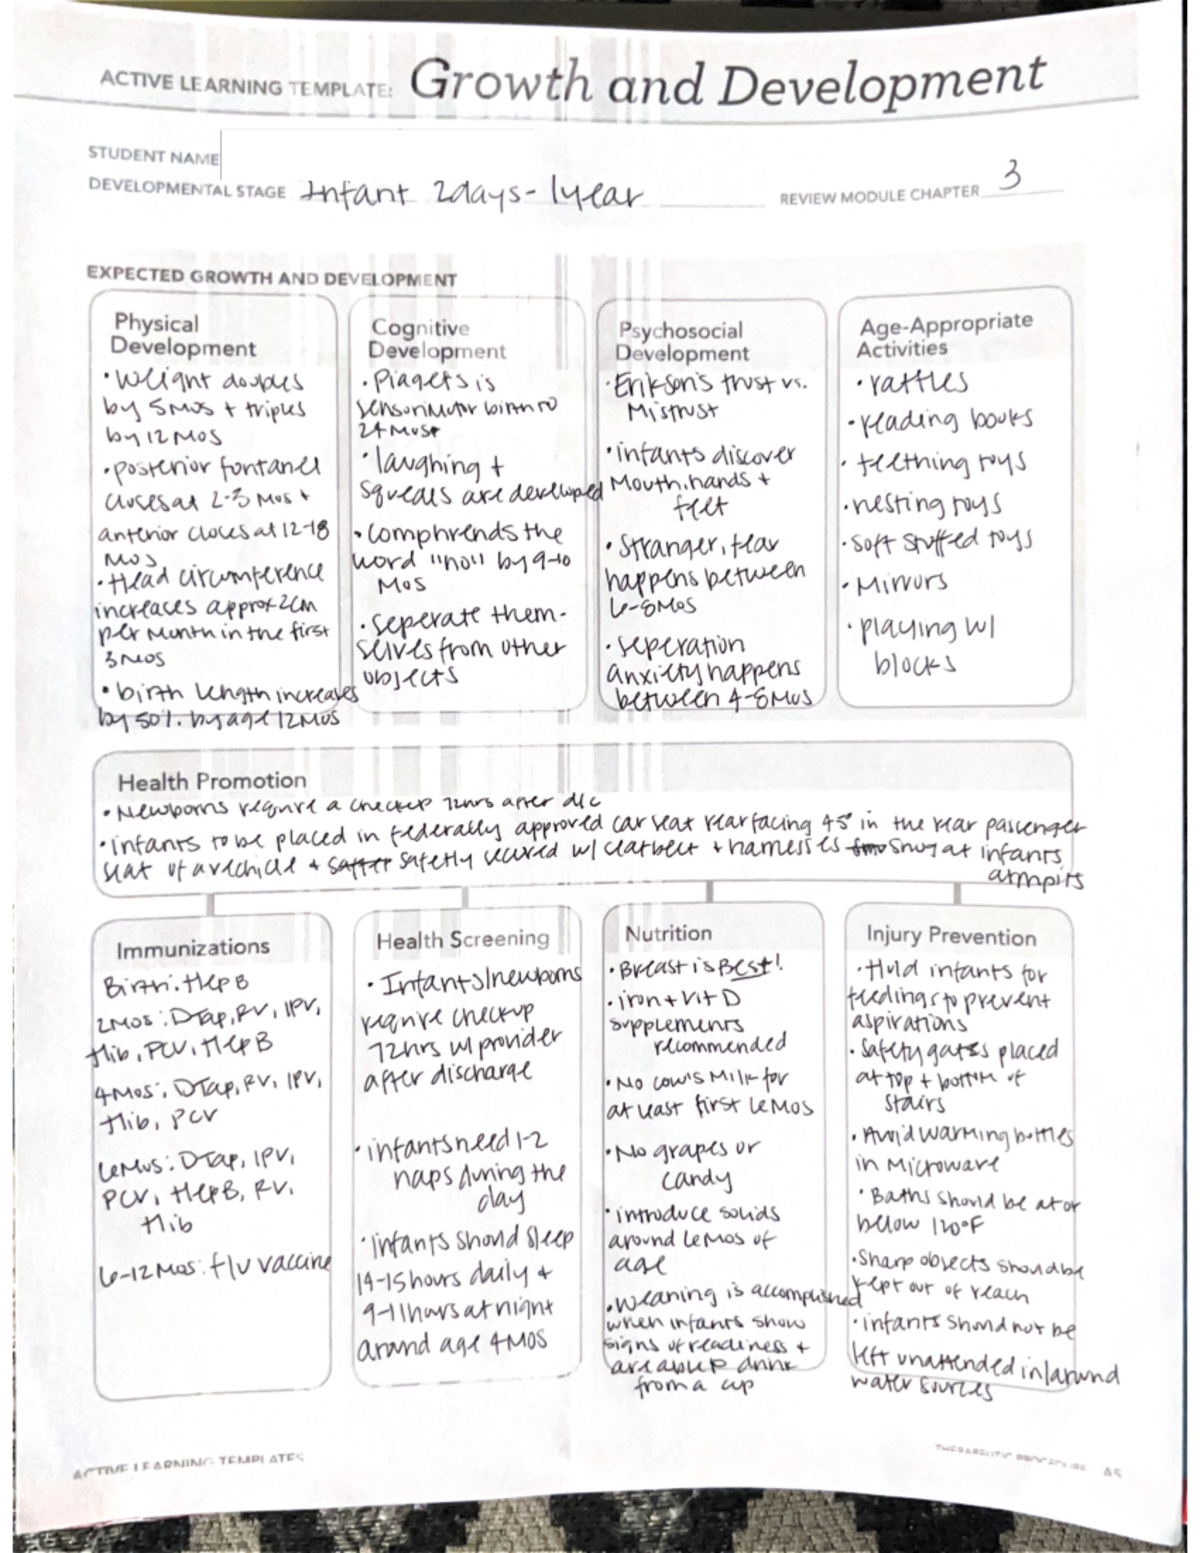 ACTIVE LEARNING TEMPLATE: Growth and Development
STUDENT NAME
DEVELOPMENTAL STAGE Infant 2days - 1year
REVIEW MODULE CHAPTER 3
EXPECTED GROWTH AND DEVELOPMENT
Physical
Development
• Weight doubles
by 5Mos + triples
by 12 Mos
• posterior fontanel
closes at 2-3 Mos +
anterior closes at 12-18
Mos
• Head circumference
increaces approx 2cm
per Month in the first
3Mos
• birth length increases
by 50% by age 12Mos
Cognitive
Development
• Piagets is
sensorimotor birth to
24 Mos
• laughing +
squeals are developed
• Comphrends the
word "no" by 9-10
Mos
• seperate them-
selves from other
objects
Psychosocial
Development
• Erikson's trust vs.
Mistrust
• infants discover
Mouth, hands +
feet
• Stranger, fear
happens between
6-8Mos
• seperation
anxiety happens
between 4-8Mos
Age-Appropriate
Activities
• rattles
• reading books
• teething toys
• nesting toys
• soft stuffed toys
• Mirrors
• playing w/
blocks
Health Promotion
• Newborns require a checkup 72hrs after d/c
• infants to be placed in federally approved car seat rear facing 45° in the rear passenger
seat of a vehicle + safetly secured w/ seatbelt + harnesses snug at infants
armpits
Immunizations
Birth: HepB
2Mos: DTap, RV, IPV,
Hib, PCV, HepB
4Mos: DTap, RV, IPV,
Hib, PCV
6Mos: DTap, IPV,
PCV, HepB, RV,
Hib
6-12Mos: flu vaccine
Health Screening
• Infants/newborns
require checkup
72hrs w/ provider
after discharge
• infants need 1-2
naps during the
day
• infants should sleep
14-15hours daily +
9-11hours at night
around age 4Mos
Nutrition
• Breast is Best!
• iron + Vit D
supplements
recommended
• No cow's Milk for
at least first 6Mos
• No grapes or
candy
• introduce solids
around 6Mos of
age
• Weaning is accomplished
when infants show
signs of readiness +
are drink
from a cup
Injury Prevention
• Hold infants for
feedings to prevent
aspirations
• Safety gates placed
at top + bottom of
stairs
• Avoid warming bottles
in Microwave
• Baths should be at or
below 120°F
• Sharp objects should be
kept out of reach
• infants should not be
left unattended in/around
water sources
ACTIVE LEARNING TEMPLATES
THERAPEUTIC PROCEDURE A5